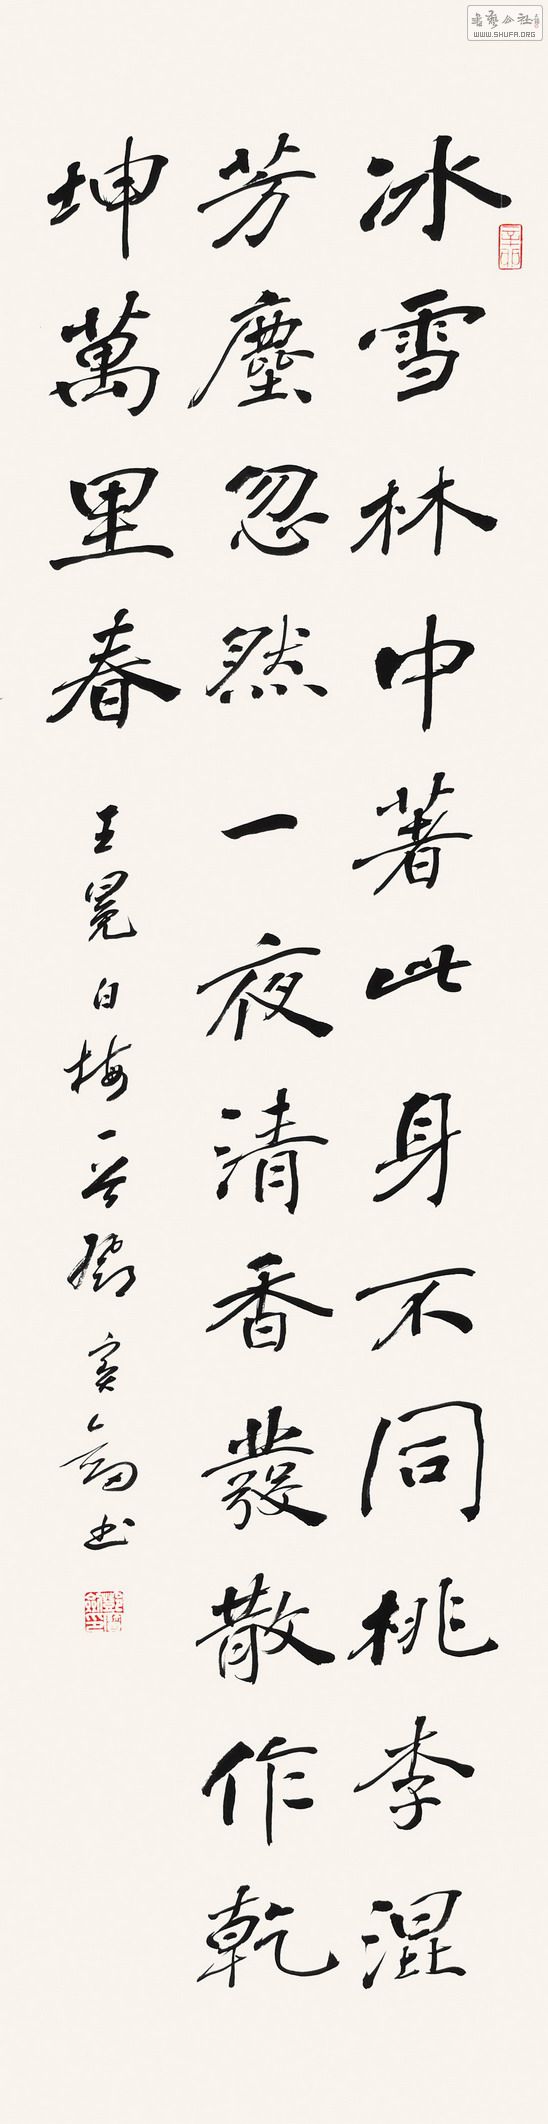 冰雪林中著此身不同桃李混
芳塵忽然一夜清香發散作乾
坤萬里春
王冕白梅一首鄧寶劍书
書藝公社
WWW.SHUFA.ORG